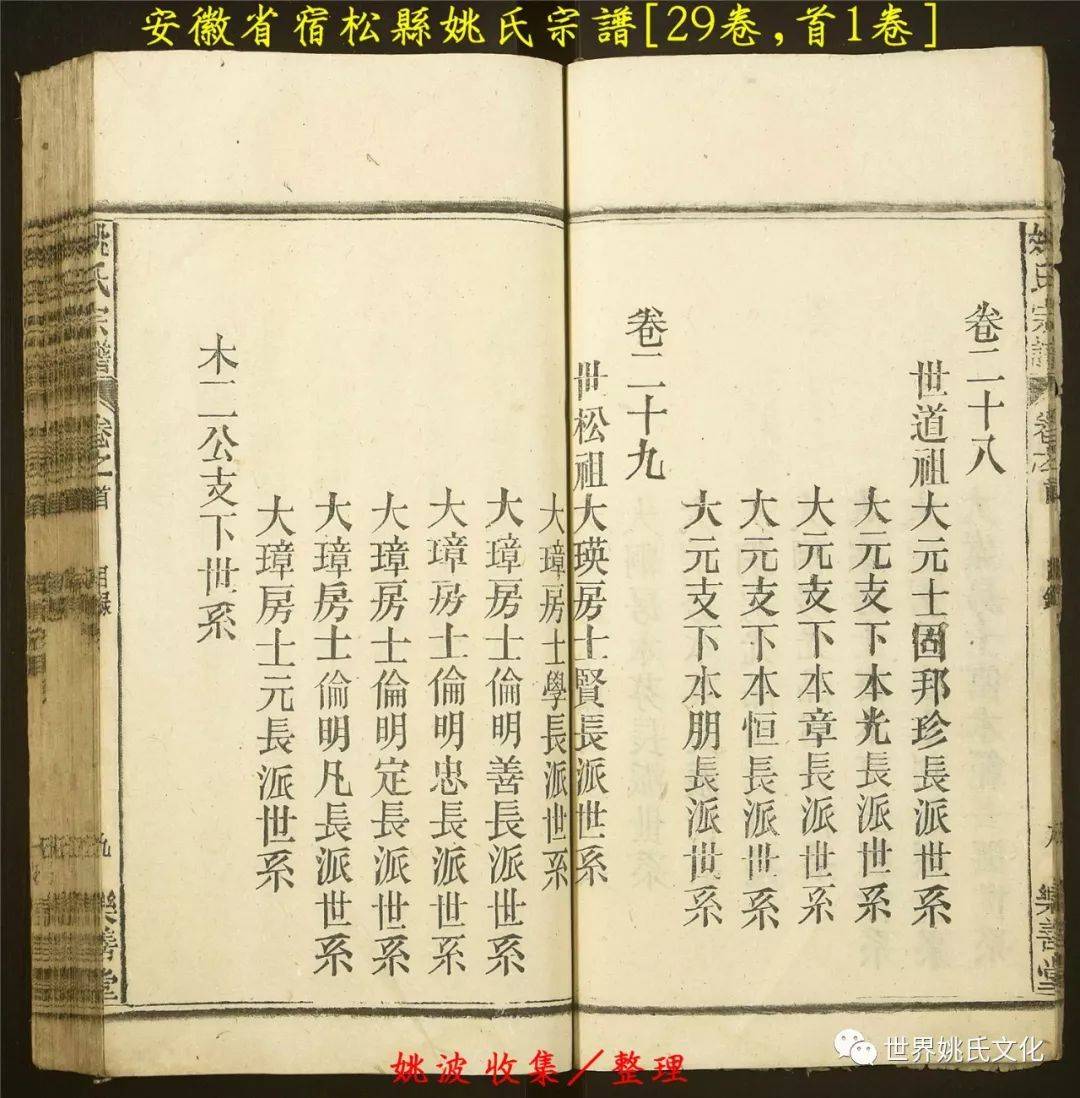 安徽省宿松縣姚氏宗譜[29卷,首1卷]
姚氏宗譜 卷之首 樂善堂
卷二十八
世道祖大元士固邦珍長派世系
大元支下本光長派世系
大元支下本章長派世系
大元支下本恒長派世系
大元支下本朋長派世系
卷二十九
世松祖大瑛房士賢長派世系
大璋房士學長派世系
大璋房士倫明善長派世系
大璋房士倫明忠長派世系
大璋房士倫明定長派世系
大璋房士倫明凡長派世系
大璋房士元長派世系
木二公支下世系
姚氏宗譜 卷之首 目錄 九 樂善堂
姚波收集/整理
世界姚氏文化